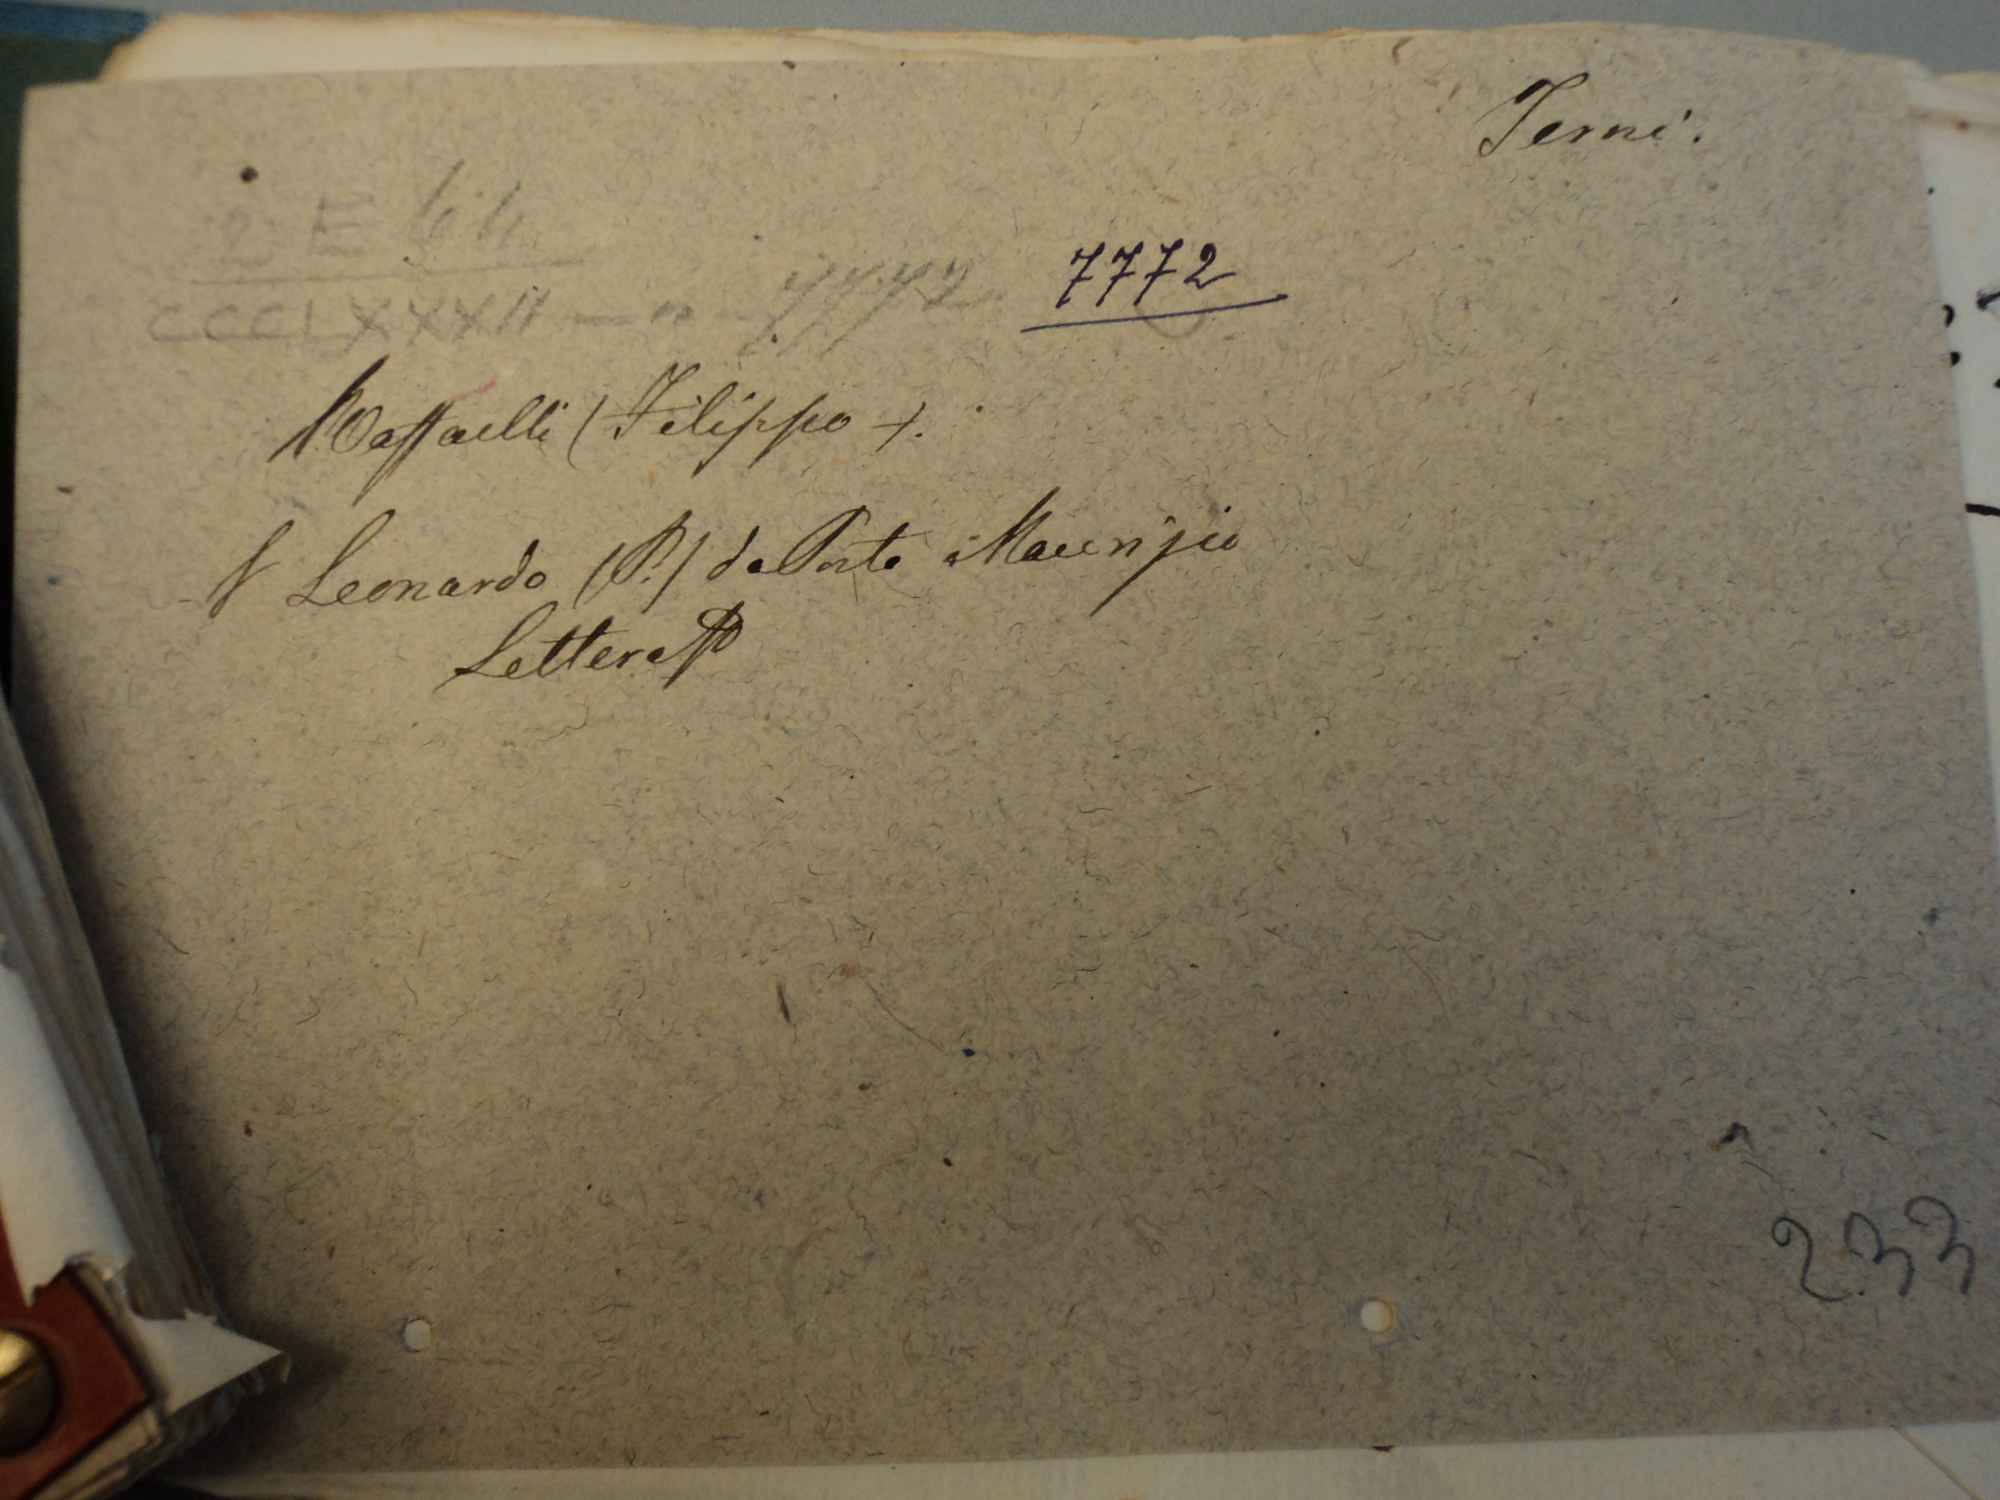 Terni.
2 E 64
CCCLXXXII — n — 7772 7772
Raffaelli (Filippo +.
S Leonardo (P.) da Porto Maurizio
Lettera
233